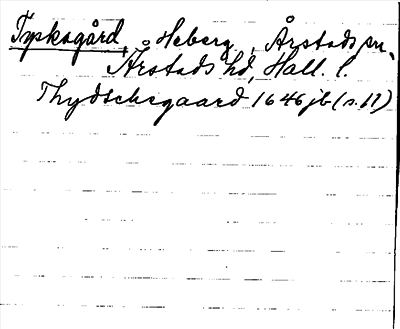 Tyskagård, Heberg, Årstads sn,
Årstads hd, Hall. l.
Thydschegaard 1646 jb (s. 17)